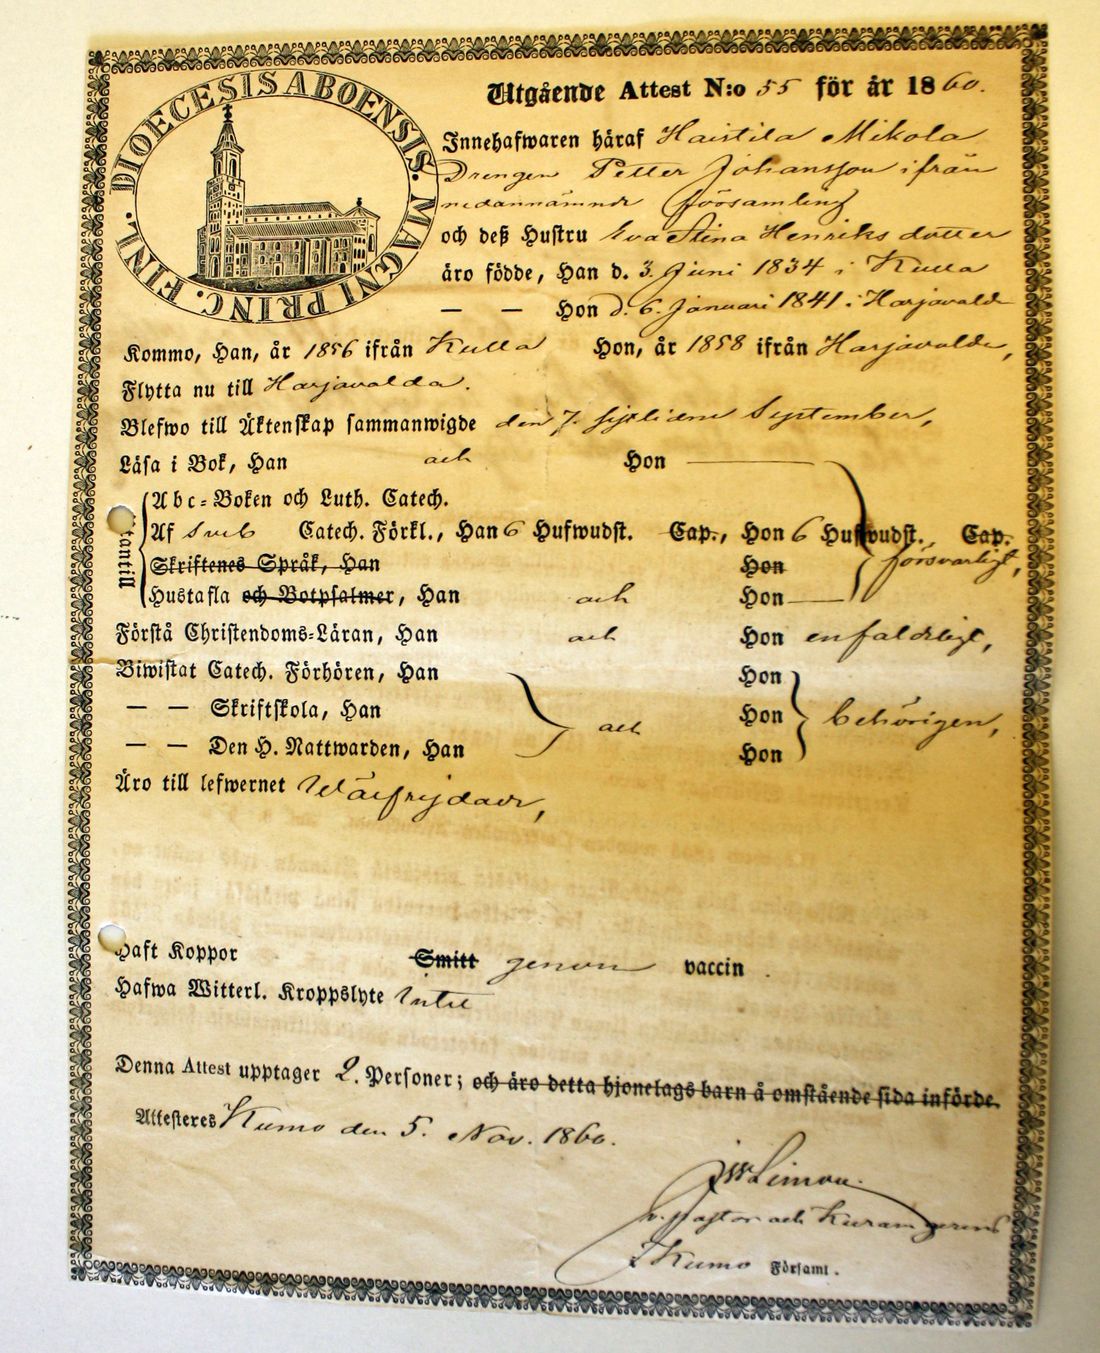 DIOECESIS ABOENSIS. MAGNI PRINC. FINL.
Utgående Attest N:o 55 för år 1860.
Innehafwaren häraf Haistila Mikola
Drengen Petter Johansson ifrån
nedannämnde församling
och deß Hustru Eva Stina Henriks dotter
äro födde, Han d. 3. Juni 1834 i Kulla
— — Hon d. 6. Januari 1841 i Harjavalda
Kommo, Han, år 1856 ifrån Kulla Hon, år 1858 ifrån Harjavalda,
Flytta nu till Harjavalda.
Blefwo till Äktenskap sammanwigde den 7. sistlidne September,
Läsa i Bok, Han och Hon —
Abc-Boken och Luth. Catech.
Utantill Af Sveb Catech. Förkl., Han 6 Hufwudst. Cap., Hon 6 Hufwudst. Cap.
Skriftenes Språk, Han Hon försvarligt,
Hustafla och Botpsalmer, Han och Hon —
Förstå Christendoms-Läran, Han och Hon enfaldeligt,
Biwistat Catech. Förhören, Han Hon
— — Skriftskola, Han och Hon behörigen,
— — Den H. Nattwarden, Han Hon
Äro till lefwernet Wälfrejdade,
Haft Koppor Smitt genom vaccin.
Hafwa Witterl. Kroppslyte Intet
Denna Attest upptager 2. Personer; och äro detta hjonelags barn å omstående sida införde.
Attesteres Kumo den 5. Nov. 1860.
v. pastor och
i Kumo Församl.